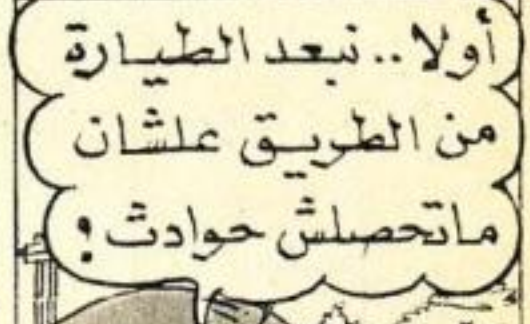 أولا.. نبعد الطيارة
من الطريق علشان
ماتحصلش حوادث؟